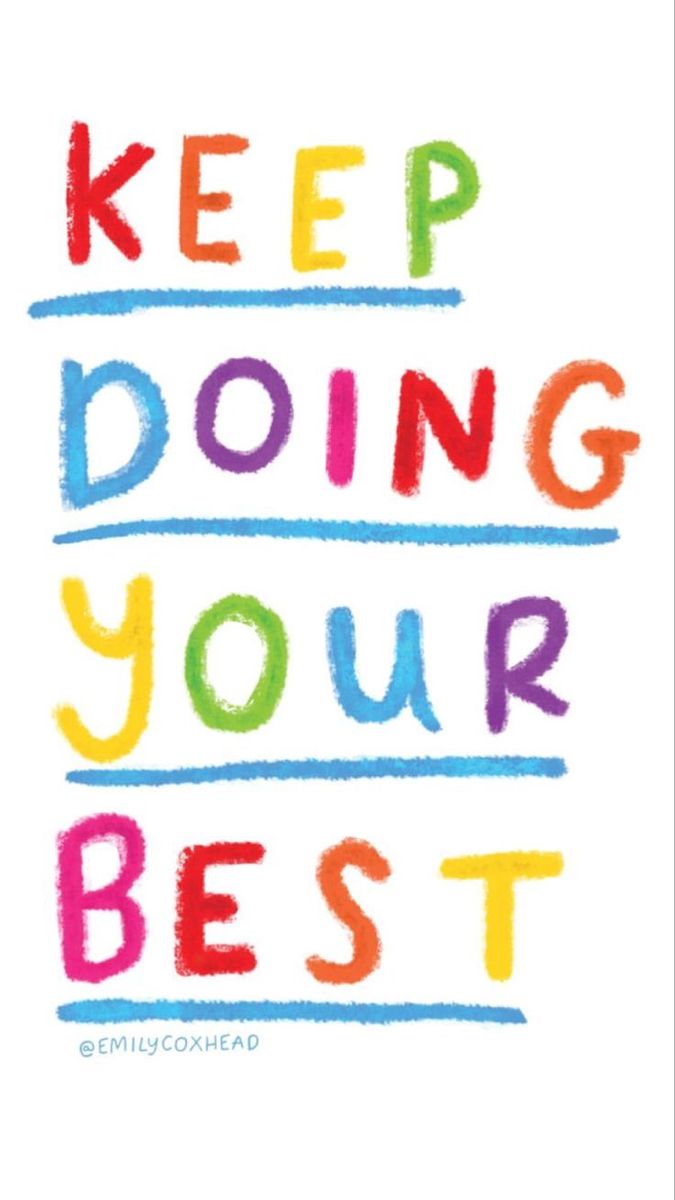 KEEP
DOING
YOUR
BEST
@EMILYCOXHEAD